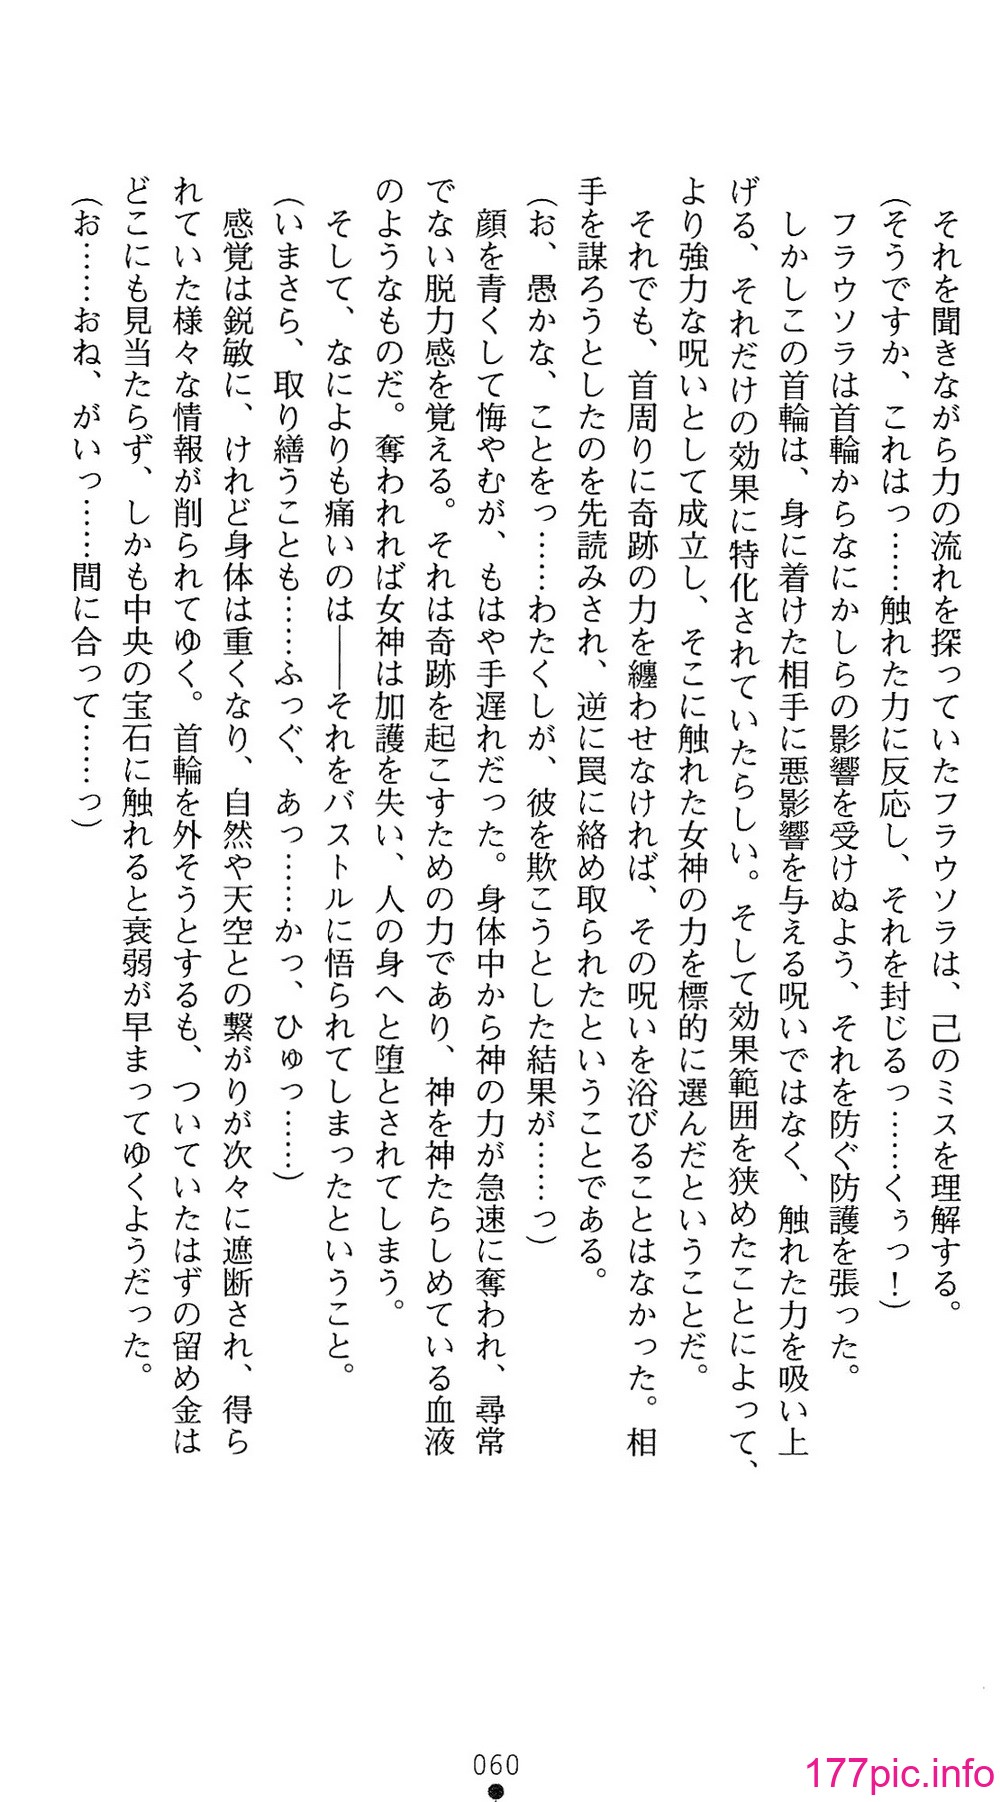 それを聞きながら力の流れを探っていたフラウソラは、己のミスを理解する。
(そうですか、これはっ……触れた力に反応し、それを封じるっ……くぅっ！)
フラウソラは首輪からなにかしらの影響を受けぬよう、それを防ぐ防護を張った。
しかしこの首輪は、身に着けた相手に悪影響を与える呪いではなく、触れた力を吸い上
げる、それだけの効果に特化されていたらしい。そして効果範囲を狭めたことによって、
より強力な呪いとして成立し、そこに触れた女神の力を標的に選んだということだ。
それでも、首周りに奇跡の力を纏わせなければ、その呪いを浴びることはなかった。相
手を謀ろうとしたのを先読みされ、逆に罠に絡め取られたということである。
(お、愚かな、ことをっ……わたくしが、彼を欺こうとした結果が……っ)
顔を青くして悔やむが、もはや手遅れだった。身体中から神の力が急速に奪われ、尋常
でない脱力感を覚える。それは奇跡を起こすための力であり、神を神たらしめている血液
のようなものだ。奪われれば女神は加護を失い、人の身へと堕とされてしまう。
そして、なによりも痛いのは――それをバストルに悟られてしまったということ。
(いまさら、取り繕うことも……ふっぐ、あっ……かっ、ひゅっ……)
感覚は鋭敏に、けれど身体は重くなり、自然や天空との繋がりが次々に遮断され、得ら
れていた様々な情報が削られてゆく。首輪を外そうとするも、ついていたはずの留め金は
どこにも見当たらず、しかも中央の宝石に触れると衰弱が早まってゆくようだった。
(お……おね、がいっ……間に合って……っ)
060
177pic.info